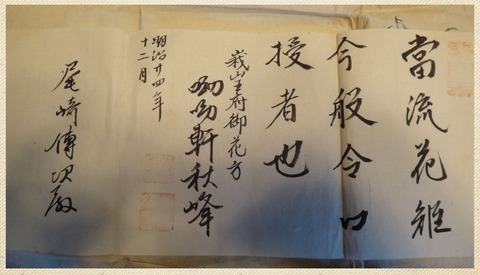 當流花
今般令口
授者也
峩山王府御花方
呦呦軒秋峰
明治廿四年
十二月
尾崎傳次殿